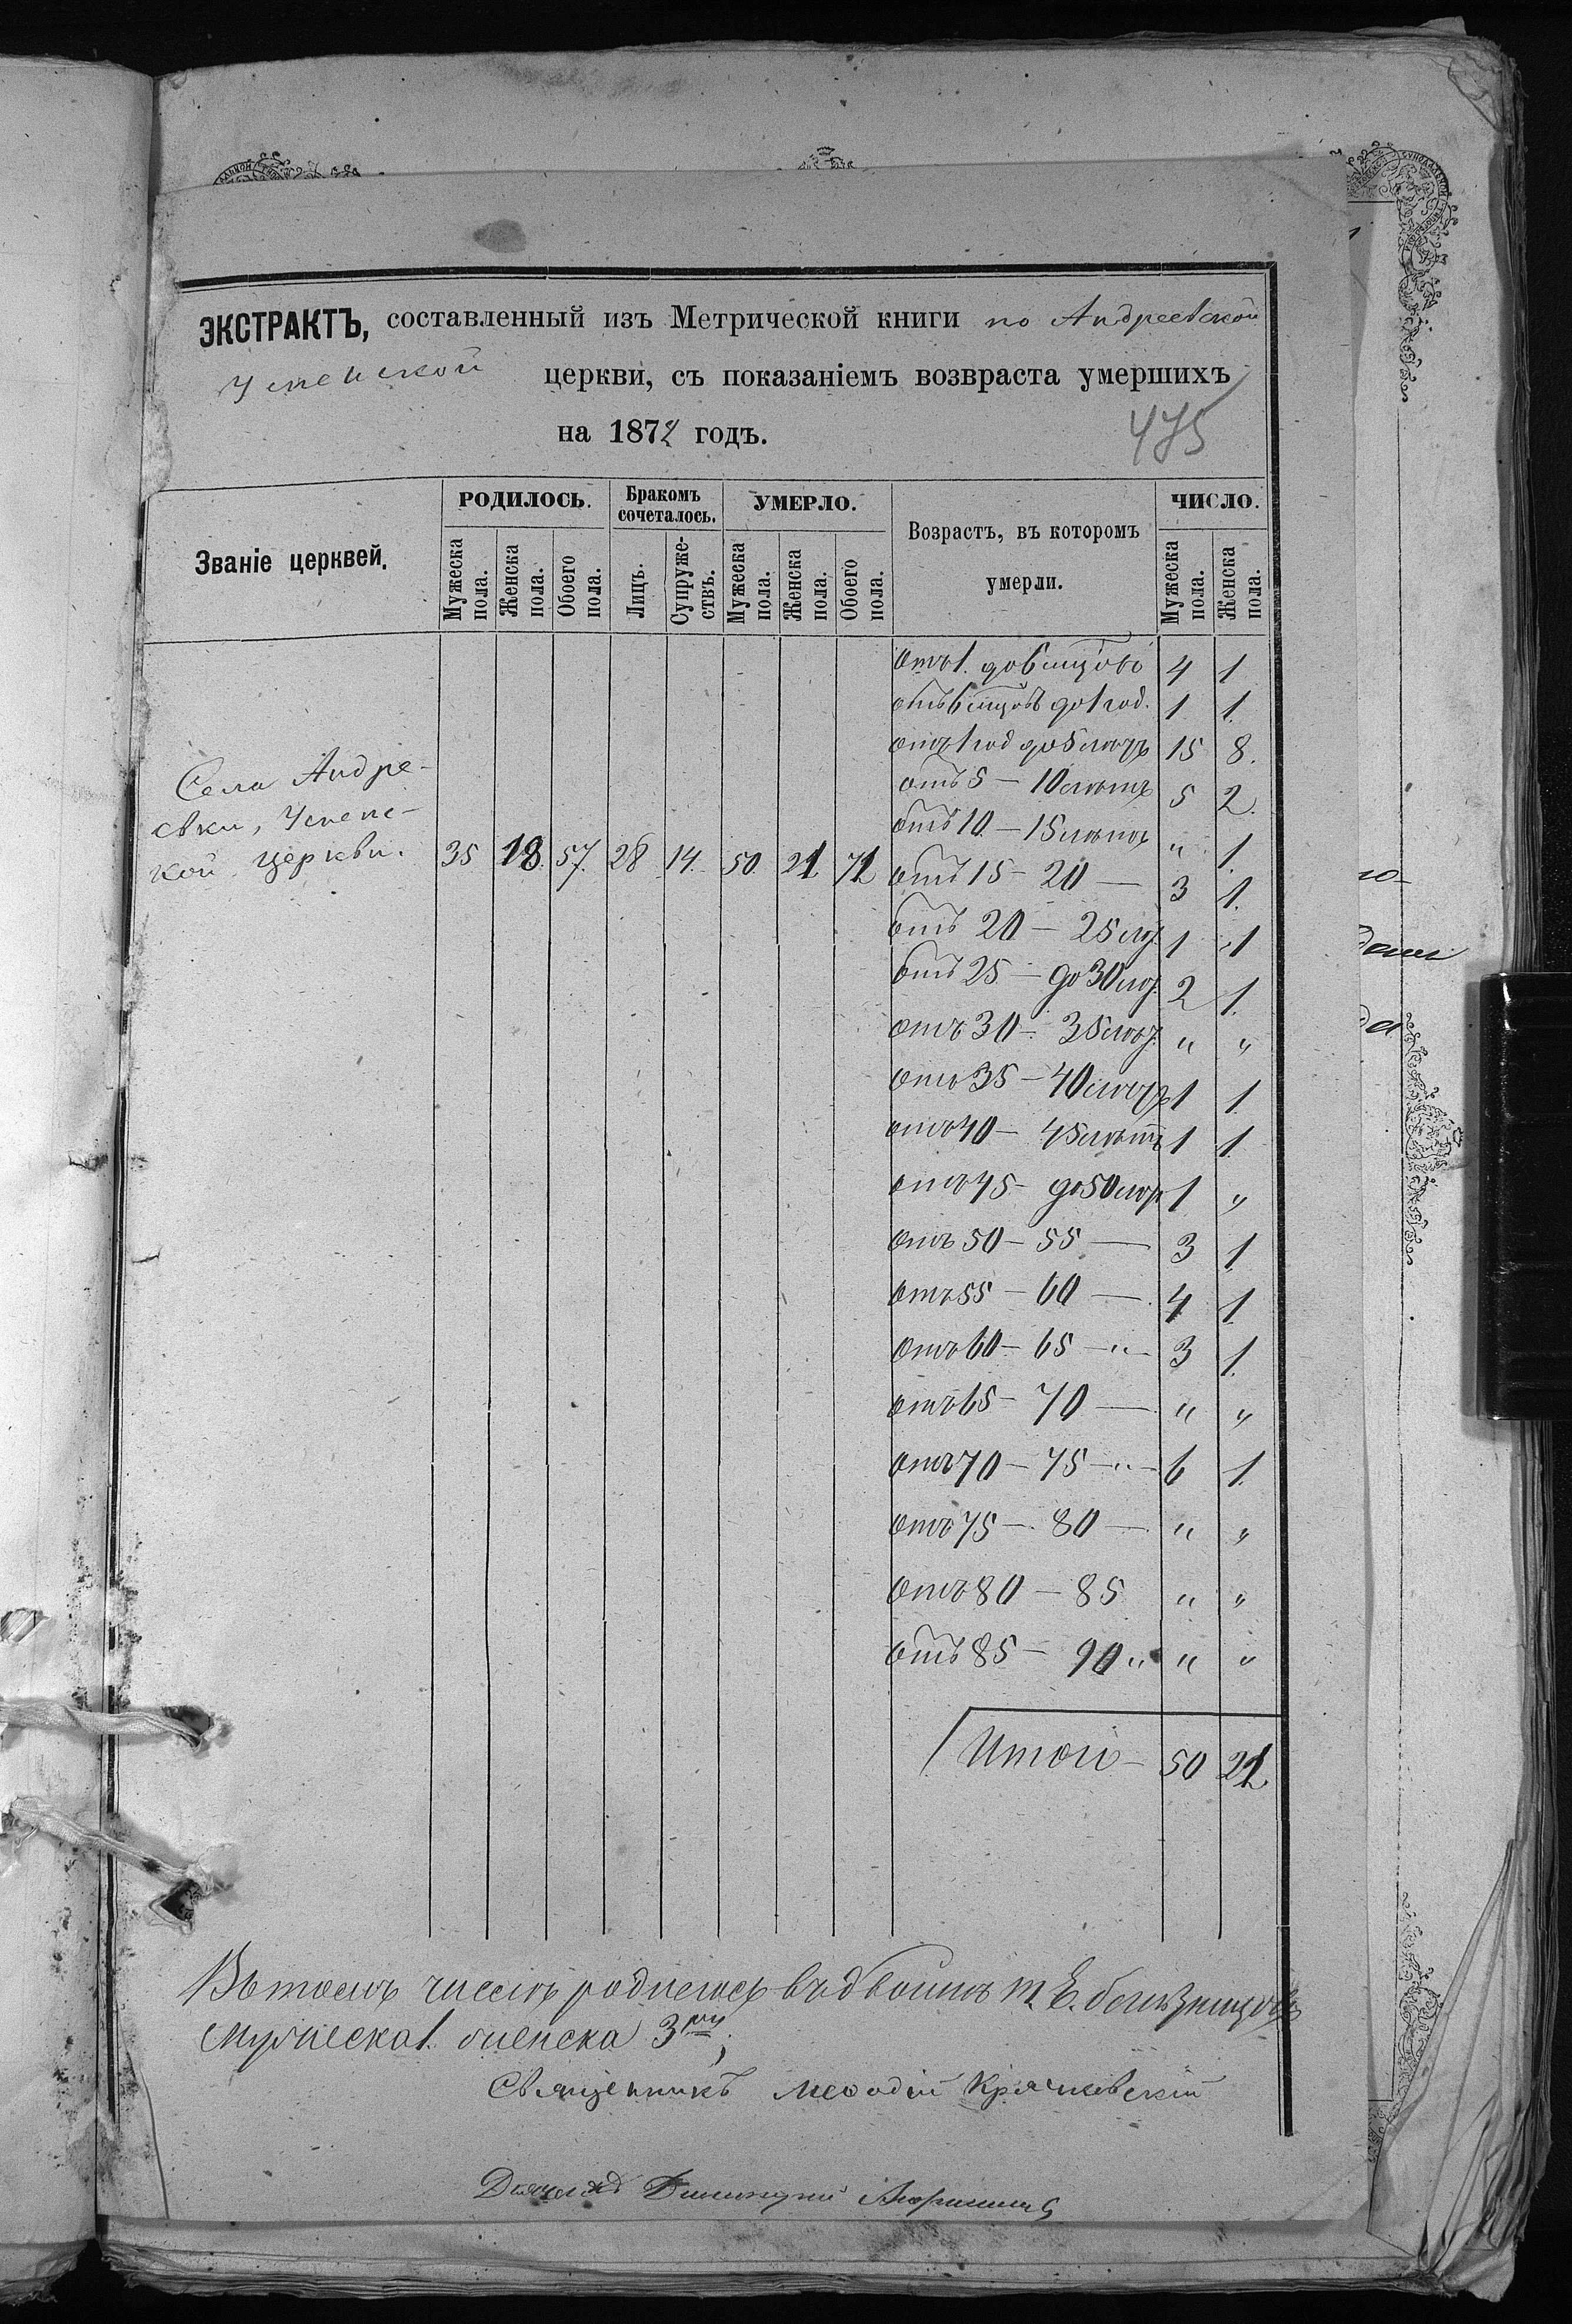 ЭКСТРАКТЪ, составленный изъ Метрической книги по Андреевской
Успенской церкви, съ показаніемъ возвраста умершихъ
на 1872 годъ.
475
Званіе церквей.
РОДИЛОСЬ.
Бракомъ сочеталось.
УМЕРЛО.
Возрастъ, въ которомъ умерли.
ЧИСЛО.
Мужеска пола.
Женска пола.
Обоего пола.
Лицъ.
Супружествъ.
Мужеска пола.
Женска пола.
Обоего пола.
Мужеска пола.
Женска пола.
отъ 1. до 6 мцовъ 4 1
отъ 6 мцовъ до 1 год. 1 1.
отъ 1 год до 5 лѣтъ 15 8.
отъ 5 — 10 лѣтъ 5 2.
отъ 10. — 15 лѣтъ „ 1.
Села Андре-
евки, Успенс-
кой церкви. 35 18. 57. 28 14. 50. 21 71
отъ 15 — 20 — 3 1.
отъ 20 — 25 лѣт. 1 1
отъ 25 — до 30 лѣт. 2 1.
отъ 30 — 35 лѣт. „ „
отъ 35 — 40 лѣтъ 1 1.
отъ 40 — 45 лѣтъ 1 1.
отъ 45 — до 50 лѣт 1 „
отъ 50 — 55 — 3 1.
отъ 55 — 60 — 4 1.
отъ 60 — 65 —„— 3 1.
отъ 65 — 70 — „ „
отъ 70 — 75 —„— 6 1.
отъ 75 — 80 — „ „
отъ 80 — 85 „ „
отъ 85 — 90 „ „ „
Итого — 50 21.
Въ томъ числѣ родилось въ двойнѣ т. Е. близнецовъ
Мужеска 1. женска 3
Священникъ Меѳодій Крячковскій